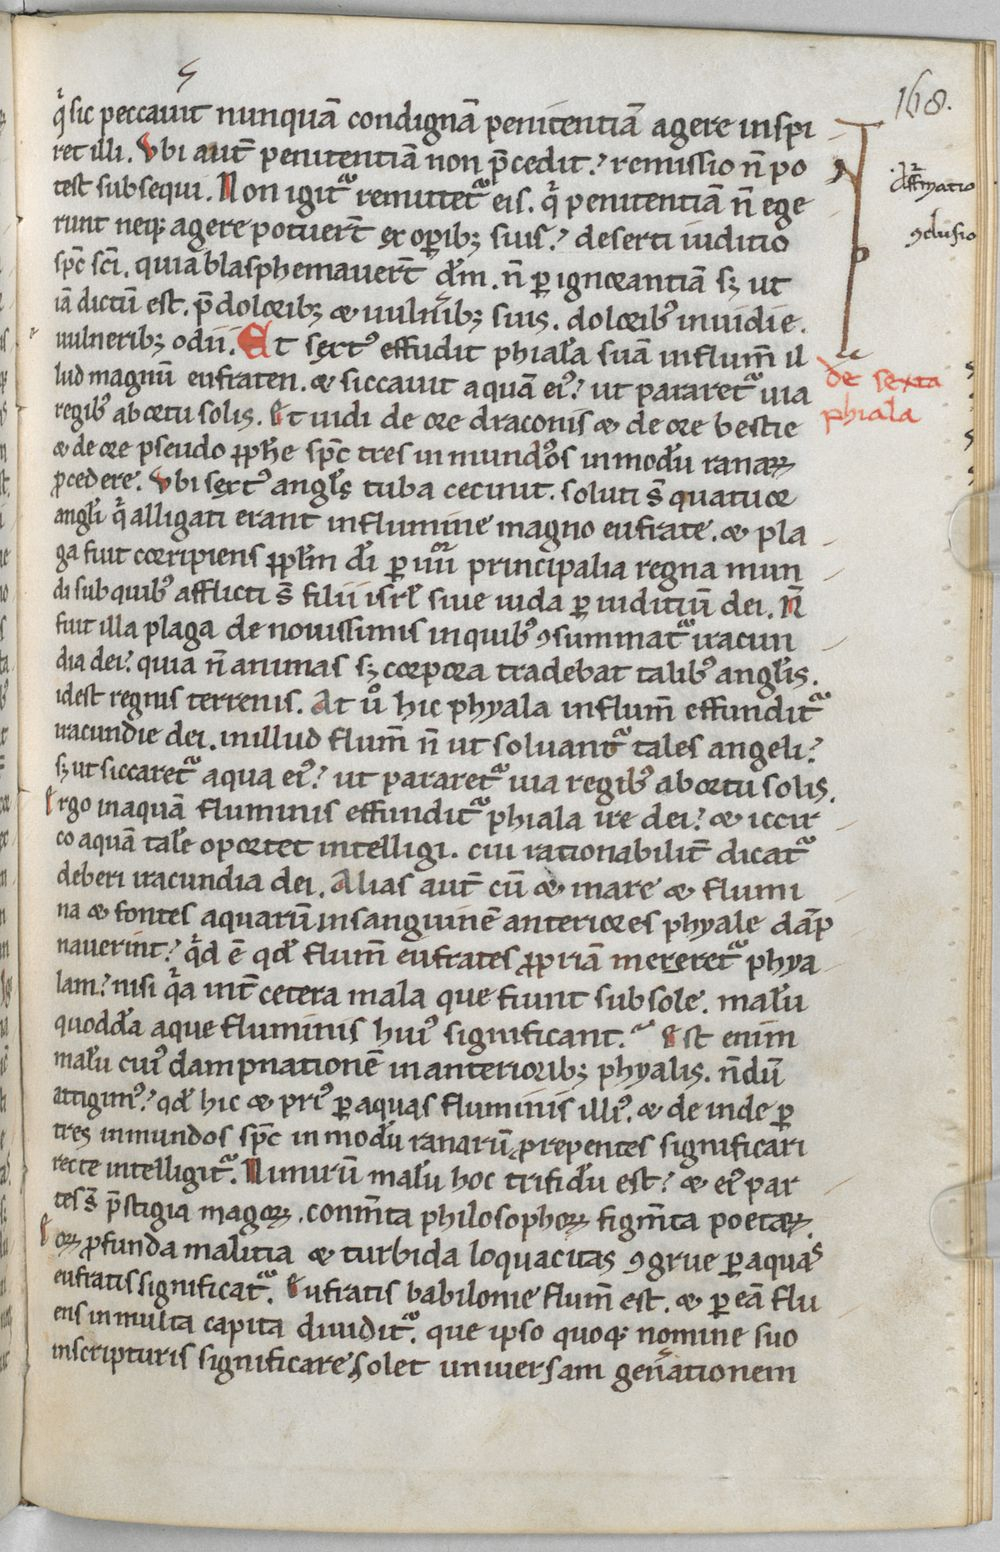 168.
qͥ sic peccauit nunquā condignā penitentiā agere inspi
ret illi. Vbi aut̄ penitentiā non p̄cedit? remissio n̄ po
test subsequi. Non igitᷣ remittetᷣ eis. qͥ penitentiā n̄ ege
runt neq; agere potuer̄t ex oꝑib; suis? deserti iuditio
sp̄c sc̄i. quia blasphemauer̄t dm̄. n̄ ꝑ ignorantiā sꝫ ut
iā dictū est. p̄ dolorib; & uulnʼib; suis. doloribꝰ inuidie.
uulnerib; odii. Et sextꝰ effudit phialā suā in flum̄ il
lud magnū eufraten. & siccauit aquā eiꝰ? ut pararetᷣ uia
regibꝰ ab ortu solis. Et uidi de ore draconis & de ore bestie
& de ore pseudo ꝓph̄e sp̄c tres inmundos in modū ranaꝝ
ꝓcedere. Vbi sextꝰ angl̄s tuba cecinit. soluti s̄ quatuor
angl̄i qͥ alligati erant in flumine magno eufrate. & pla
ga fuit corripiens ꝓpl̄m dī ꝑ iiiiᵒʳ principalia regna mun
di sub quibꝰ afflicti s̄ filii isrl̄ siue iuda ꝑ iuditiū dei. N̄
fuit illa plaga de nouissimis in quibꝰ ꝯsummatᷣ iracun
dia dei? quia n̄ animas sꝫ corpora tradebat talibꝰ angl̄is.
idest regnis terrenis. At uͦ hic phyala in flum̄ effunditᷣ
iracundie dei. in illud flum̄ n̄ ut soluantᷣ tales angeli?
sꝫ ut siccaretᷣ aqua eiꝰ? ut pararetᷣ uia regibꝰ ab ortu solis.
Ergo in aquā fluminis effunditᷣ phiala ire dei? & iccir
co aquā talē oportet intelligi. cui rationabilit̄ dicatᷣ
deberi iracundia dei. Alias aut̄ cū & mare & flumi
na & fontes aquarū in sanguinē anteriores phyale dāp
nauerint? qͥd ē qd̄ flum̄ eufrates ꝓpriā mereretᷣ phya
lam? nisi qͥa int̄ cetera mala que fiunt sub sole. malū
quoddā aque fluminis huiꝰ significant. Est enim
malū cuiꝰ dampnationē in anteriorib; phyalis. n̄dū
attigimꝰ? qd̄ hic & priꝰ ꝑ aquas fluminis illiꝰ. & deinde ꝑ
tres inmundos sp̄c in modū ranarū ꝓrepentes significari
recte intelligitᷣ. Nimirū malū hoc trifidū est? & eiꝰ par
tes s̄ p̄stigia magoꝝ. conm̄ta philosophoꝝ figm̄ta poetaꝝ.
Eoꝝ ꝓfunda malitia & turbida loquacitas ꝯgrue ꝑ aquas
eufratis significatᷣ. Eufratis babilonie flum̄ est. & ꝑ eā flu
ens in multa capita diuiditᷣ. que ipso quoq; nomine suo
in scripturis significare solet uniuersam genʼationem
ꝯclusio
de sexta
phiala